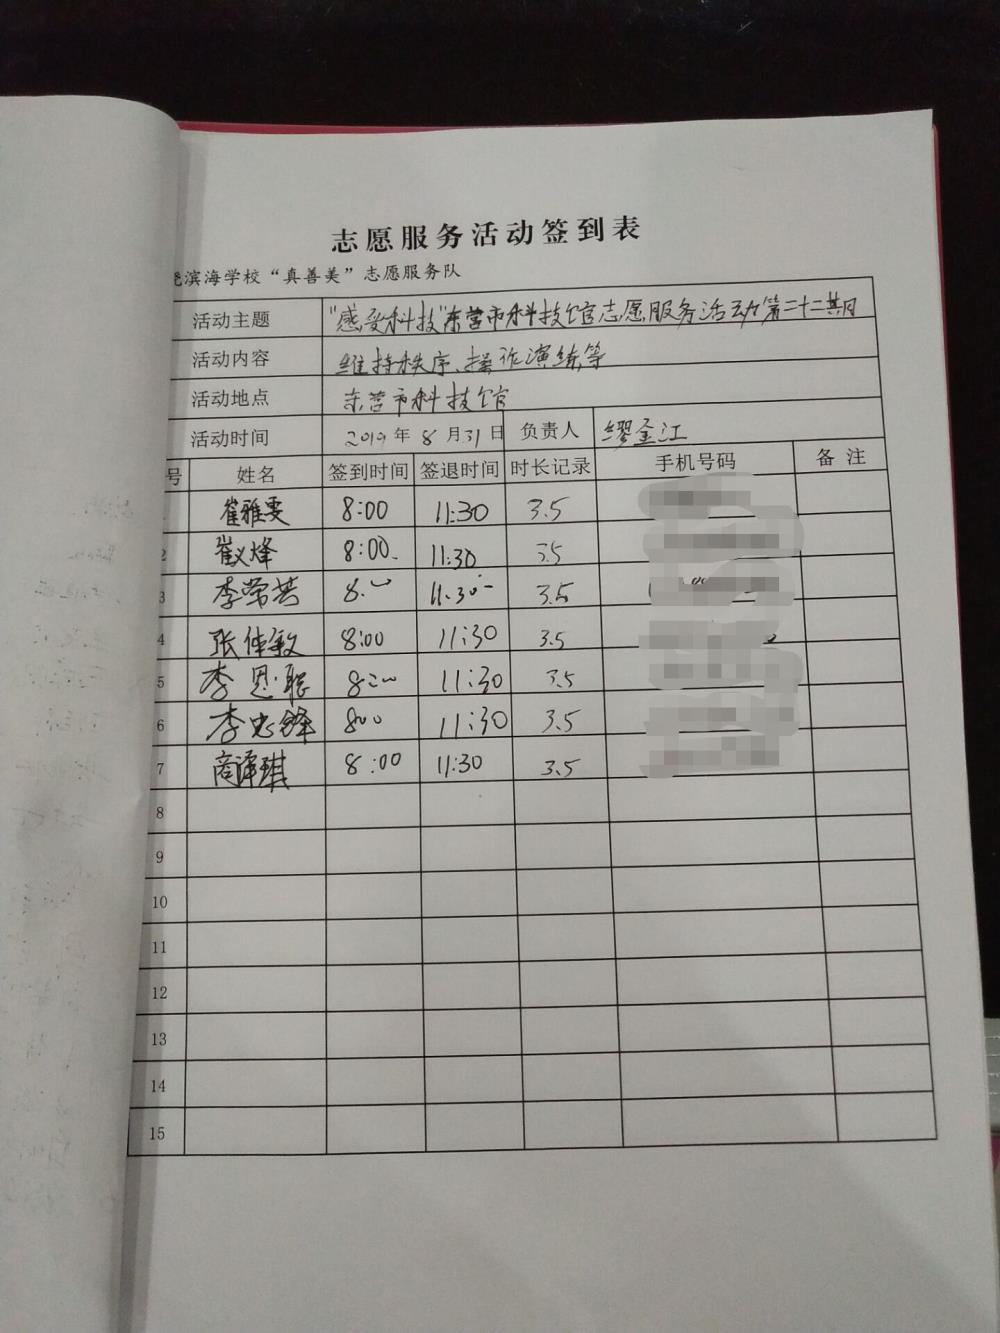 志愿服务活动签到表
滨海学校“真善美”志愿服务队
活动主题 “感受科技”东营市科技馆志愿服务活动第二十二期
活动内容 维持秩序、操作演练等
活动地点 东营市科技馆
活动时间 2019年8月31日 负责人 缪金江
号 姓名 签到时间 签退时间 时长记录 手机号码 备注
1 崔雅雯 8:00 11:30 3.5
2 崔义烽 8:00 11:30 3.5
3 李常芸 8:00 11:30 3.5
4 张佳敏 8:00 11:30 3.5
5 李恩聪 8:00 11:30 3.5
6 李忠锋 8:00 11:30 3.5
7 商泽琪 8:00 11:30 3.5
8
9
10
11
12
13
14
15